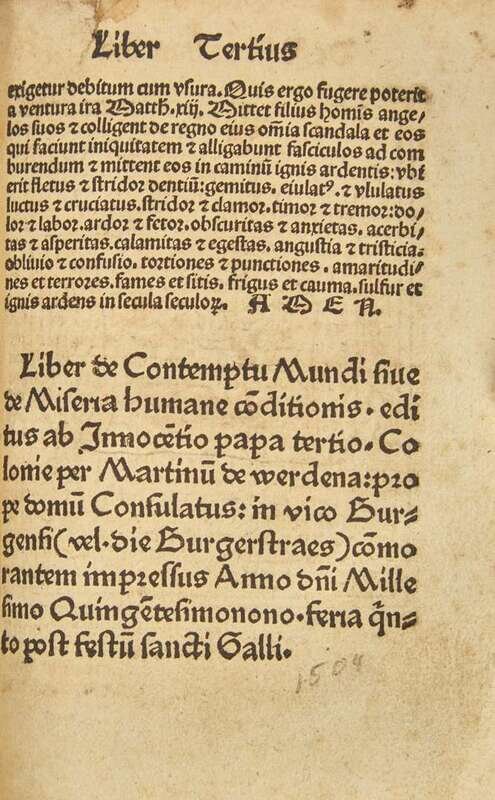 Liber Tertius
exigetur debitum cum vsura. Quis ergo fugere poterit
a ventura ira Matth. xiij. Mittet filius hominis ange⸗
los suos ⁊ colligent de regno eius om̄ia scandala et eos
qui faciunt iniquitatem ⁊ alligabunt fasciculos ad com
burendum ⁊ mittent eos in caminū ignis ardentis: vbi
erit fletus ⁊ stridor dentiū: gemitus. eiulatꝰ. ⁊ vlulatus
luctus ⁊ cruciatus. stridor ⁊ clamor. timor ⁊ tremor: do⸗
lor ⁊ labor. ardor ⁊ fetor. obscuritas ⁊ anxietas. acerbi⸗
tas ⁊ asperitas. calamitas ⁊ egestas. angustia ⁊ tristicia:
obliuio ⁊ confusio. tortiones ⁊ punctiones. amaritudi⸗
nes et terrores. fames et sitis. frigus et cauma. sulfur et
ignis ardens in secula seculoꝝ. A M E N.
Liber de Contemptu Mundi siue
de Miseria humane cōditionis. edi
tus ab Innocētio papa tertio. Co
lonie per Martinū de werdena: pro
pe domū Consulatus: in vico Bur⸗
gensi (vel. die Burgerstraes) cōmo
rantem impressus Anno dn̄i Mille
simo Quingētesimonono. feria q̄n⸗
to post festū sancti Galli.
1504